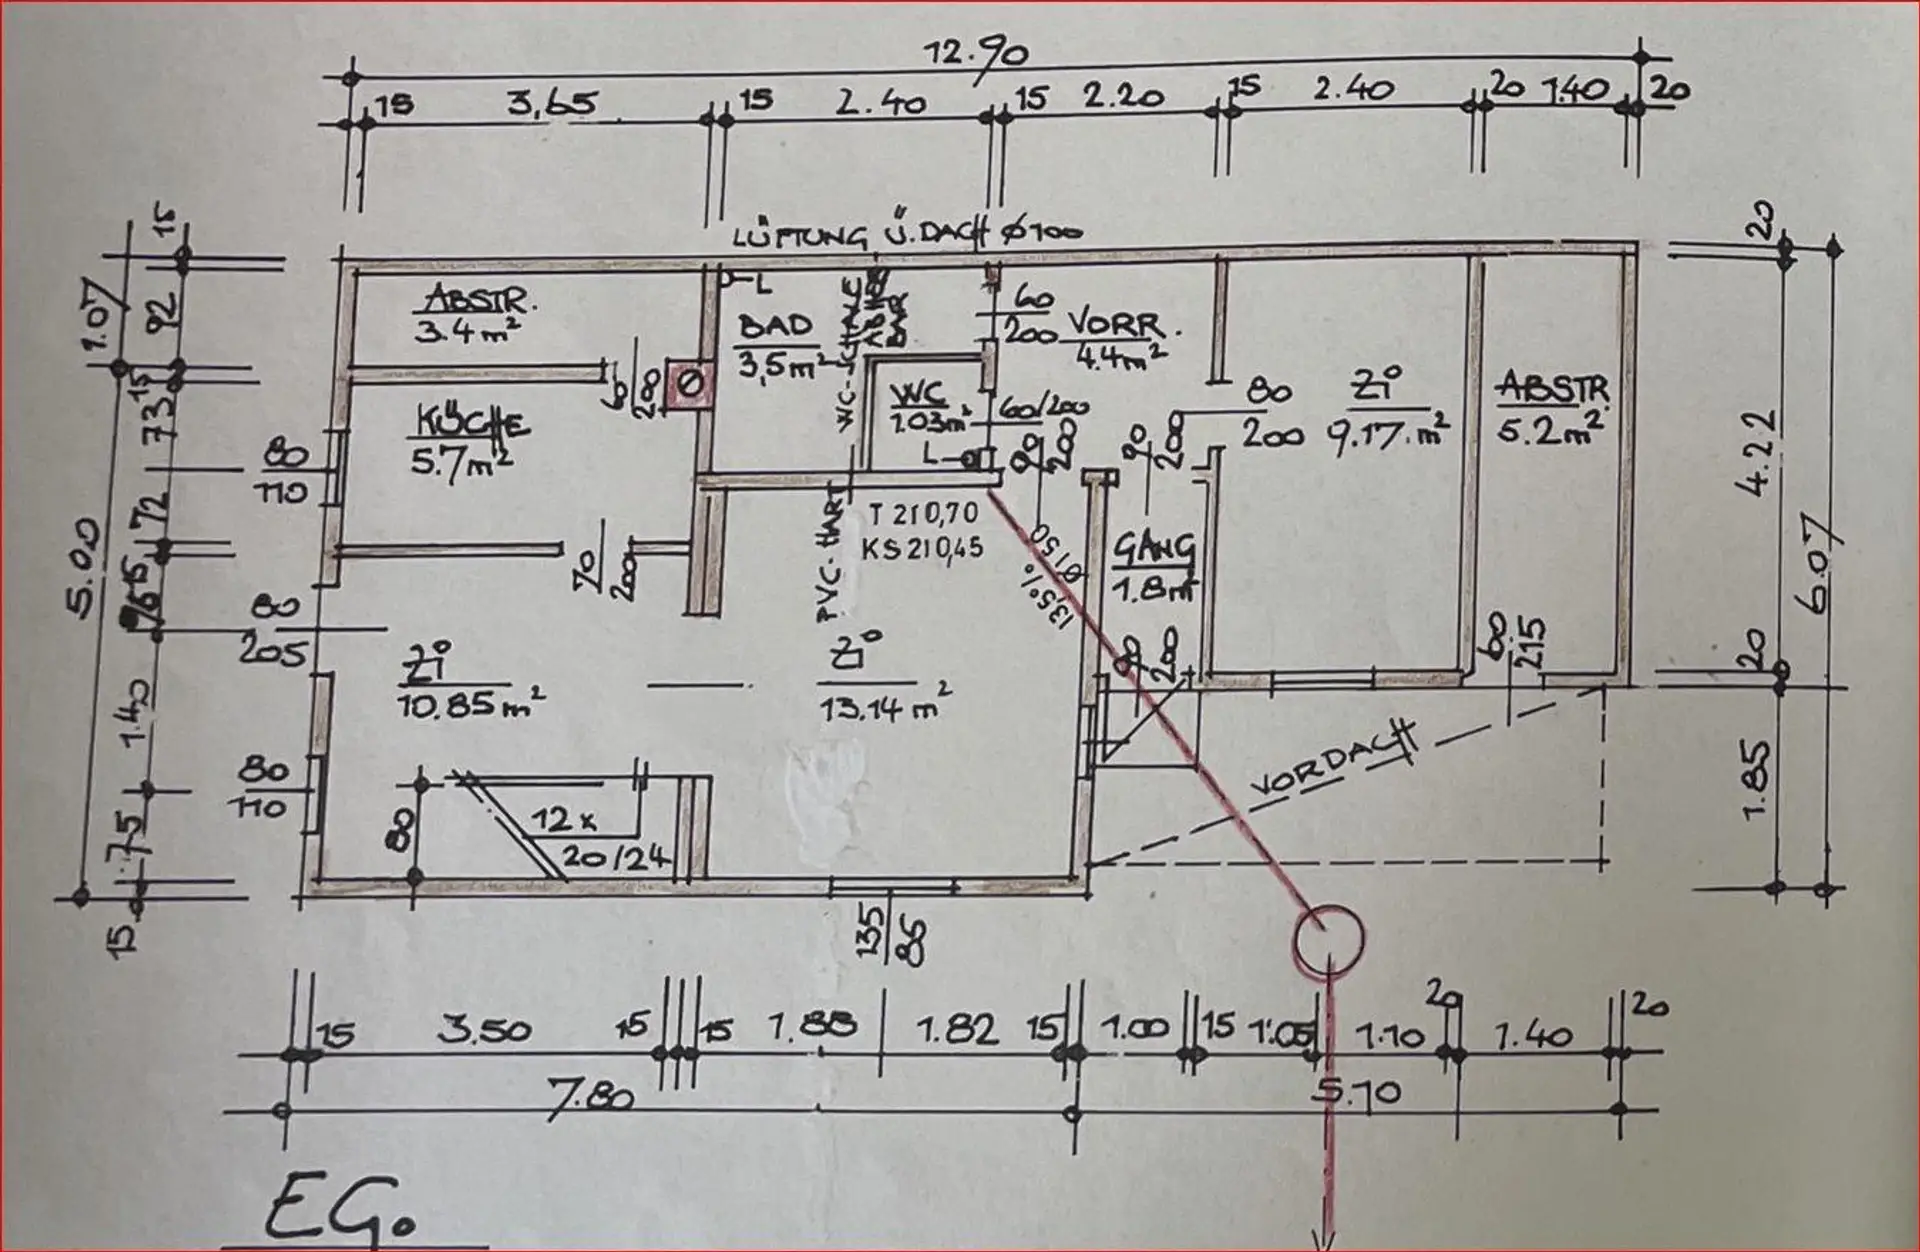 12.90
15 3,65 15 2.40 15 2.20 15 2.40 20 1.40 20
LÜFTUNG Ü.DACH Ø100
15
1.07
92
15
73
72
15
5.00
1.40
75
15
ABSTR.
3.4m²
60
200
KÜCHE
5.7m²
80
110
70
200
80
205
80
110
L
BAD
3,5m²
WC-SCHALE
PVC-HART
WC
1.03m²
L
60
200
VORR.
4.4m²
60/200
90
200
90
200
80
200
Zi
9.17.m²
ABSTR.
5.2m²
T 210,70
KS 210,45
Ø150
13,5%
GANG
1.8m²
90
200
Zi
10.85m²
Zi
13.14m²
80
12x
20/24
135
86
80
215
VORDACH
20
4.22
20
6.07
1.85
15 3.50 15 15 1.88 1.82 15 1.00 15 1.05 1.10 20 1.40 20
7.80 5.10
EG.